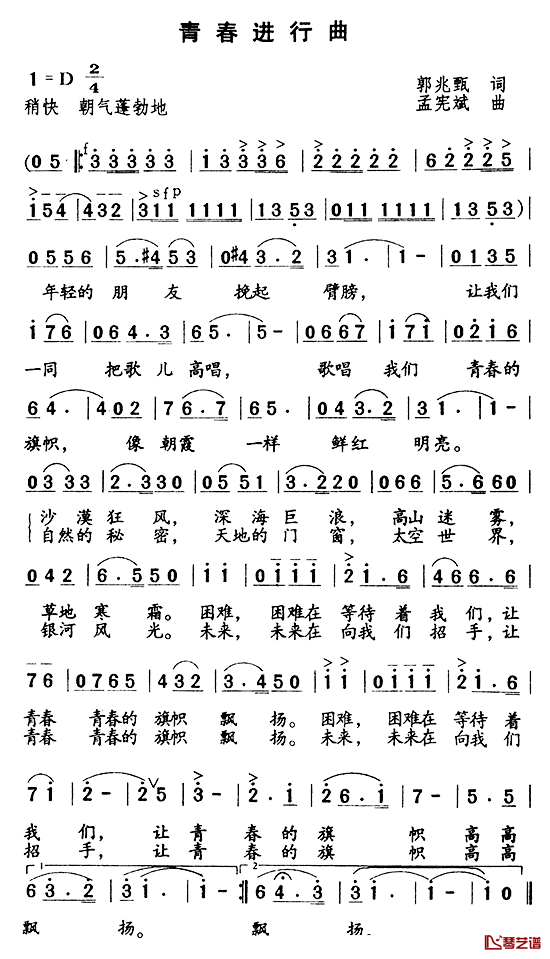 青春进行曲
1=D 2/4
郭兆甄 词
稍快 朝气蓬勃地
孟宪斌 曲
(05 𝄆 f 33333 | 13336 | 22222 | 62225 |
154 | 432 | sfp 311 1111 | 1353 | 011 1111 | 1353) |
0556 | 5.#453 | 0#43.2 | 31. | 1- | 0135 |
年轻的 朋友 挽起 臂膀， 让我们
176 | 064.3 | 65. | 5- | 0667 | 171 | 0216 |
一同 把歌儿高唱， 歌唱 我们 青春的
64. | 402 | 76.7 | 65. | 043.2 | 31. | 1- |
旗帜， 像 朝霞 一样 鲜红 明亮。
03 33 | 2.330 | 0551 | 3.220 | 066 | 5.660 |
沙漠狂风， 深海巨浪， 高山迷雾，
自然的秘密， 天地的门窗， 太空世界，
042 | 6.550 | 11 | 0111 | 21.6 | 466.6 |
草地寒霜。困难，困难在 等待着我们，让
银河风光。未来，未来在 向我们招手，让
76 | 0765 | 432 | 3.450 | 11 | 0111 | 21.6 |
青春 青春的旗帜 飘扬。困难，困难在 等待着
青春 青春的旗帜 飘扬。未来，未来在 向我们
71 | 2- | 25 | 3- | 2.1 | 26.1 | 7- | 5.5 |
我们， 让青 春的旗 帜高高
招手， 让青 春的旗 帜高高
1 63.2 | 31. | 1- :‖ 2 64.3 | 31. | 1- | 10 ‖
飘 扬。 飘 扬.
琴艺谱